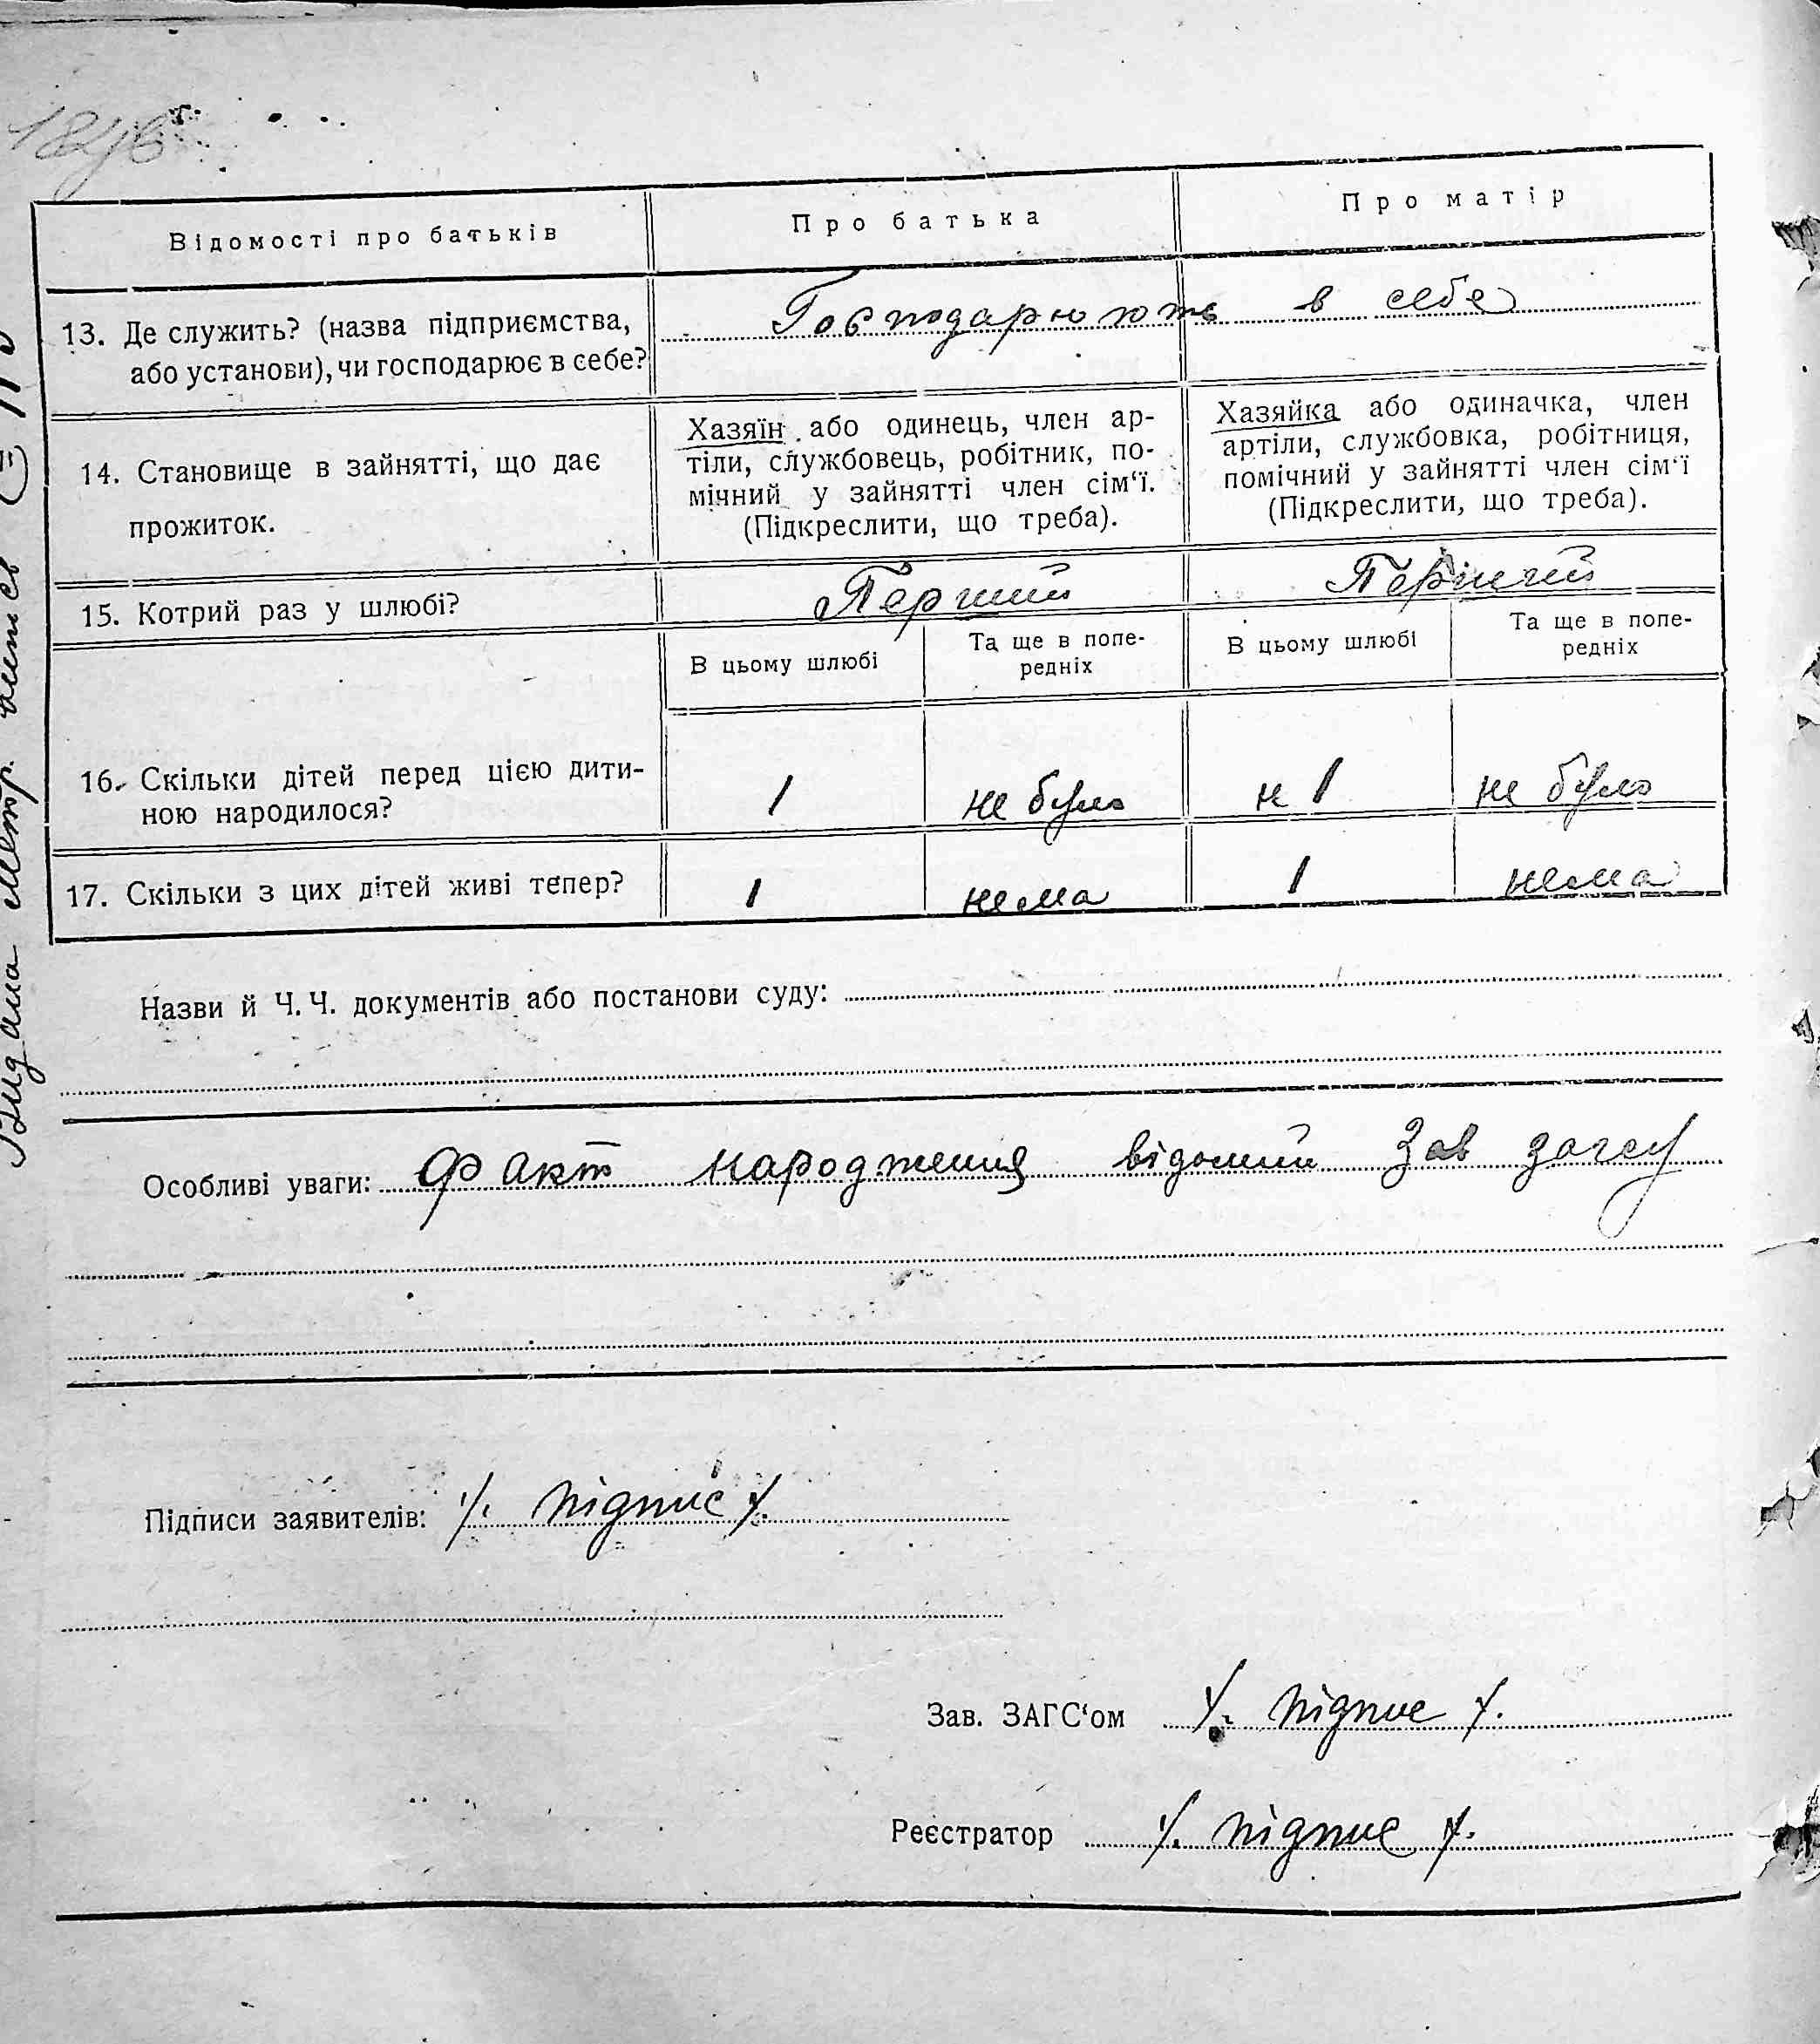 Відомості про батьків
Про батька
Про матір
13. Де служить? (назва підприємства,
або установи), чи господарює в себе?
Господарюють в себе
14. Становище в зайнятті, що дає
прожиток.
Хазяїн або одинець, член ар-
тіли, службовець, робітник, по-
мічний у зайнятті член сім‘ї.
(Підкреслити, що треба).
Хазяйка або одиначка, член
артіли, службовка, робітниця,
помічний у зайнятті член сім‘ї
(Підкреслити, що треба).
15. Котрий раз у шлюбі?
Перший
Перший
В цьому шлюбі
Та ще в попе-
редніх
В цьому шлюбі
Та ще в попе-
редніх
16. Скільки дітей перед цією дити-
ною народилося?
1
не було
н 1
не було
17. Скільки з цих дітей живі тепер?
1
нема
1
нема
Назви й Ч. Ч. документів або постанови суду:
Особливі уваги: Факт народження відомий Зав загсу
Підписи заявителів: /. підпис /.
Зав. ЗАГС‘ом /. підпис /.
Реєстратор /. підпис /.
Видана метр.